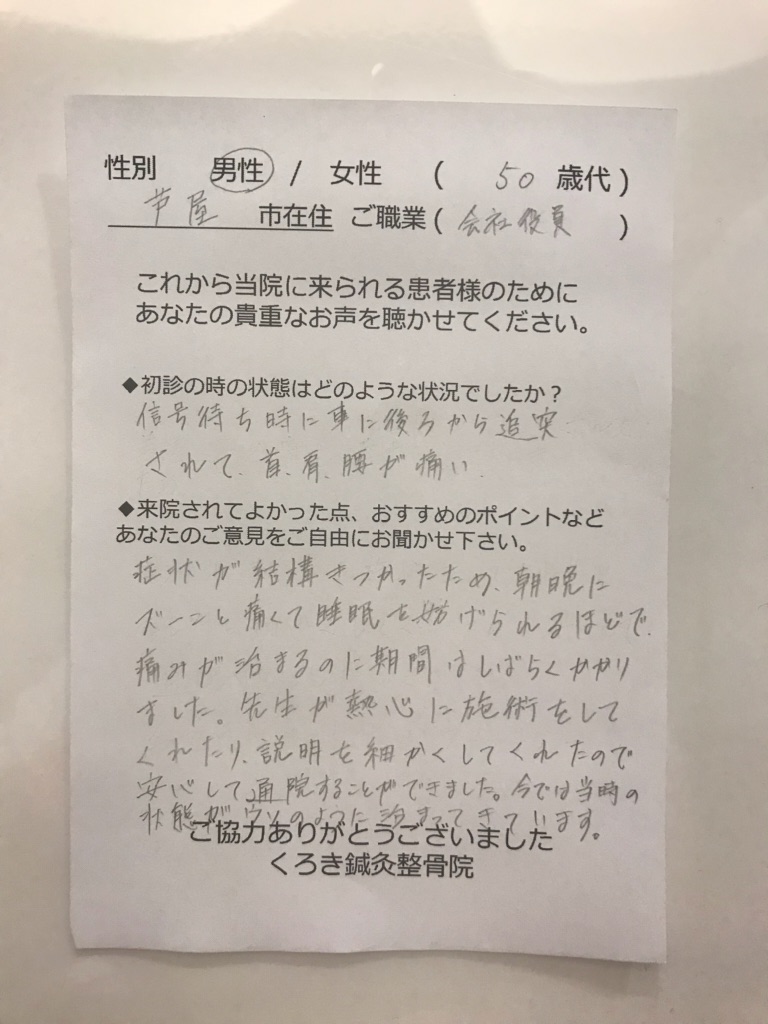 性別 男性 / 女性 ( 50 歳代 )
芦屋 市在住 ご職業 ( 会社役員 )
これから当院に来られる患者様のために
あなたの貴重なお声を聴かせてください。
◆初診の時の状態はどのような状況でしたか？
信号待ち時に車に後ろから追突
されて、首、肩、腰が痛い。
◆来院されてよかった点、おすすめのポイントなど
あなたのご意見をご自由にお聞かせ下さい。
症状が結構きつかったため、朝晩に
ズーンと痛くて睡眠を妨げられるほどで、
痛みが治まるのに期間はしばらくかかり
ました。先生が熱心に施術をして
くれたり、説明を細かくしてくれたので
安心して通院することができました。今では当時の
状態がウソのように治まってきています。
ご協力ありがとうございました
くろき鍼灸整骨院